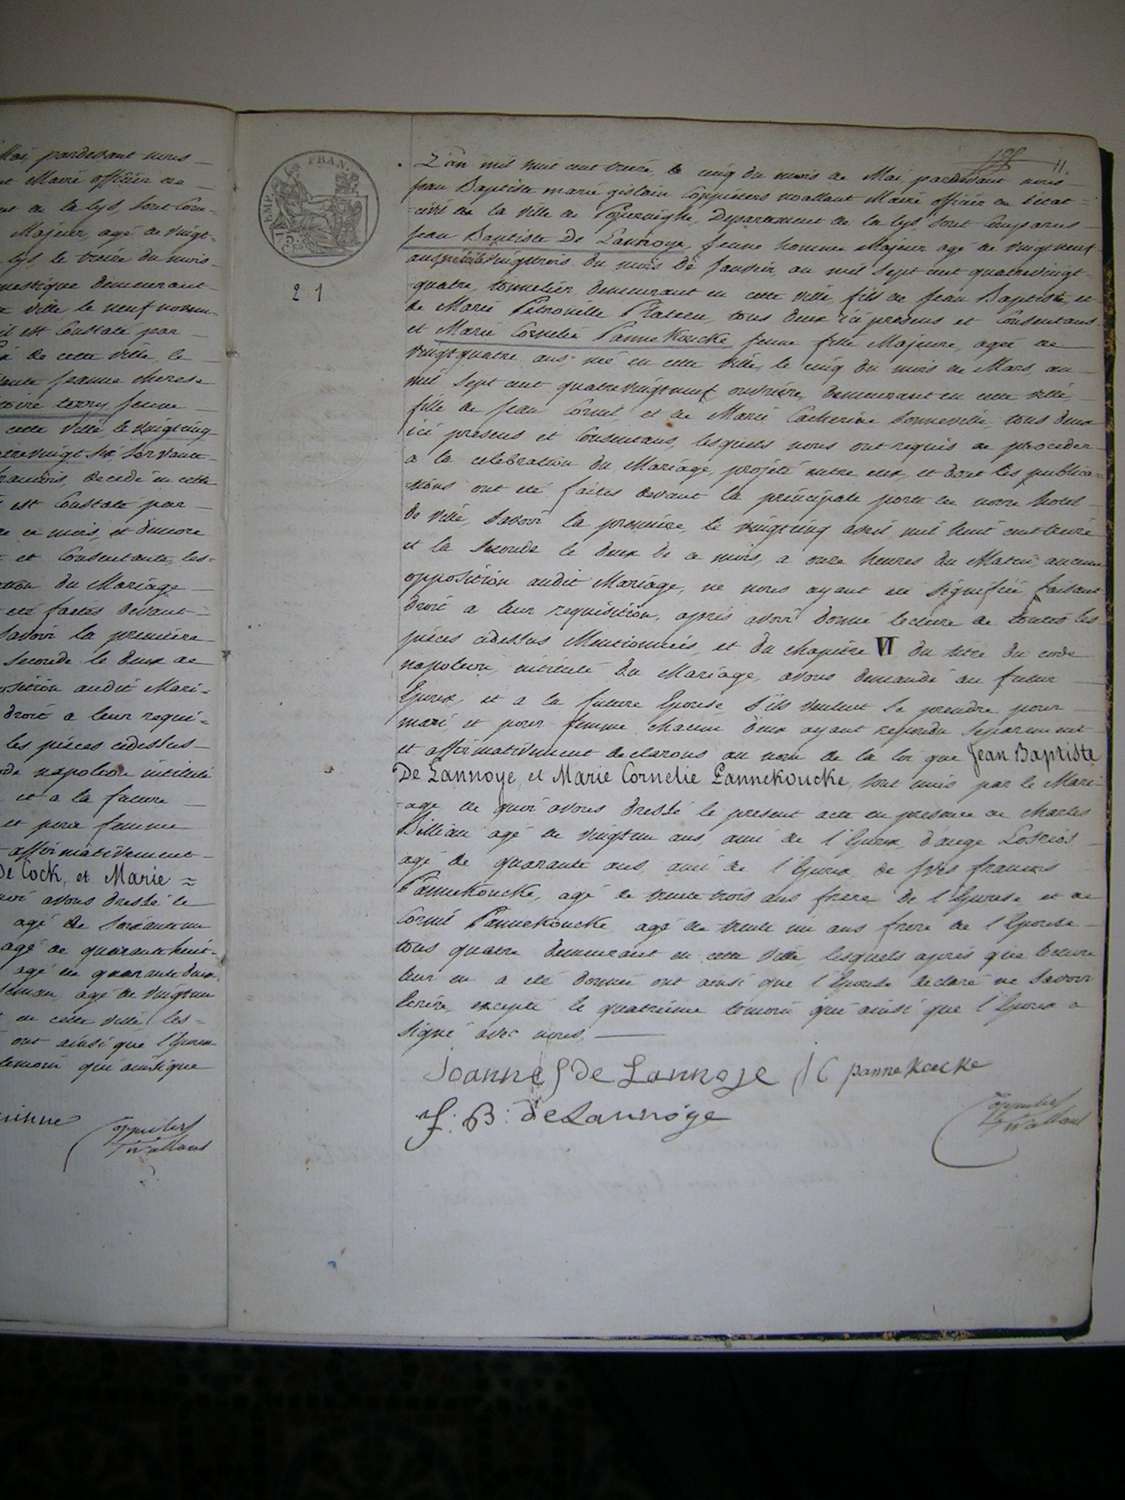 Mai, pardevant nous
et Maire officier de
ent de la Lys, sont Com-
Majeur, agé de vingt-
Lys le treize du mois
domestique demeurant
ville le neuf novem-
il est Constaté par
de cette ville, le
france therese
terryn jeune
cette ville le vingtcinq
quatrevingt six servante
francois, decedé en cette
est Constaté par
ce mois, et encore
et Consentante, les-
du Mariage
eté faites devant
savoir la premiere
seconde le deux de
opposition audit Mari-
droit a leur requi-
les pièces cidessus
code napoleon intitulé
et a la future
et pour femme
affirmativement
De Cock, et Marie =
quoi avons dressé le
agé de soixante un
agé de quarante huit
agé de quarante deux
agé de vingt un
en cette ville les-
ont ainsi que l'Epouse
temoin qui ainsi que
Coppieters
t'Wallant
TIMP. FRANC.
2 1
11.
L'an mil huit cent treize le cinq du mois de Mai, pardevant nous
jean Baptiste marie gislain Coppieters twallant Maire officier de l'etat-
civil de la ville de Poperinghe, Departement de la Lys, sont Comparus
Jean Baptiste De Lannoye, jeune homme Majeur agé de vingt neuf
ans né en cette ville le vingttrois du mois de Janvier an mil sept cent quatrevingt-
quatre, tonnelier demeurant en cette ville fils de Jean Baptiste et
de Marie Petronille Plateeu, tous deux ici presens et Consentans
et Marie Cornelie Pannekoucke jeune fille Majeure, agée de
vingtquatre ans, née en cette ville, le cinq du mois de Mars an
mil sept cent quatrevingtneuf ouvriere, demeurant en cette ville,
fille de Jean Cornil et de Marie Catherine Bonneville, tous deux
ici presens et Consentans, lesquels nous ont requis de proceder
a la celebration du Mariage, projeté entre eux, et dont les publica-
tions ont eté faites devant la principale porte de notre hotel
de ville, savoir la premiere, le vingtcinq avril mil huit cent treize
et la seconde le deux de ce mois, a onze heures du Matin, aucune
opposition audit Mariage, ne nous ayant eté signifiée faisant
droit a leur requisition, après avoir donné lecture de toutes les
pièces cidessus Mentionnées, et du chapitre VI du titre du code
napoleon, intitulé du Mariage, avons demandé au futur
Epoux, et a la future Epouse s'ils veulent se prendre pour
mari et pour femme chacun d'eux ayant repondu separement
et affirmativement declarons au nom de la loi que Jean Baptiste
De Lannoye, et Marie Cornelie Pannekoucke, sont unis par le Mari-
age de quoi avons dressé le present acte en presence de Charles
Billiau agé de vingtun ans ami de l'Epoux, d'ange
agé de quarante ans, ami de l'Epoux, de yves francois
Pannekoucke, agé de trente trois ans frere de l'Epouse et de
Cornil Pannekoucke agé de trente un ans frere de l'Epouse
tous quatre demeurant en cette ville lesquels après que lecture
leur en a eté donnée ont ainsi que l'Epouse declaré ne savoir
Ecrire, excepté le quatrieme temoin qui ainsi que l'Epoux a
signé avec nous
Joannes de Lannoje J C pannekoecke
J: B: de Lannoÿe
Coppieters
t'Wallant